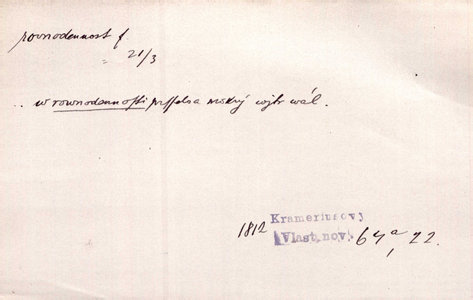 rovnodennost f
= 21/3
.. w rownodennosti a mokrý wjtr wál.
1812 Krameriusovy
Vlast. nov. 64a, 22.